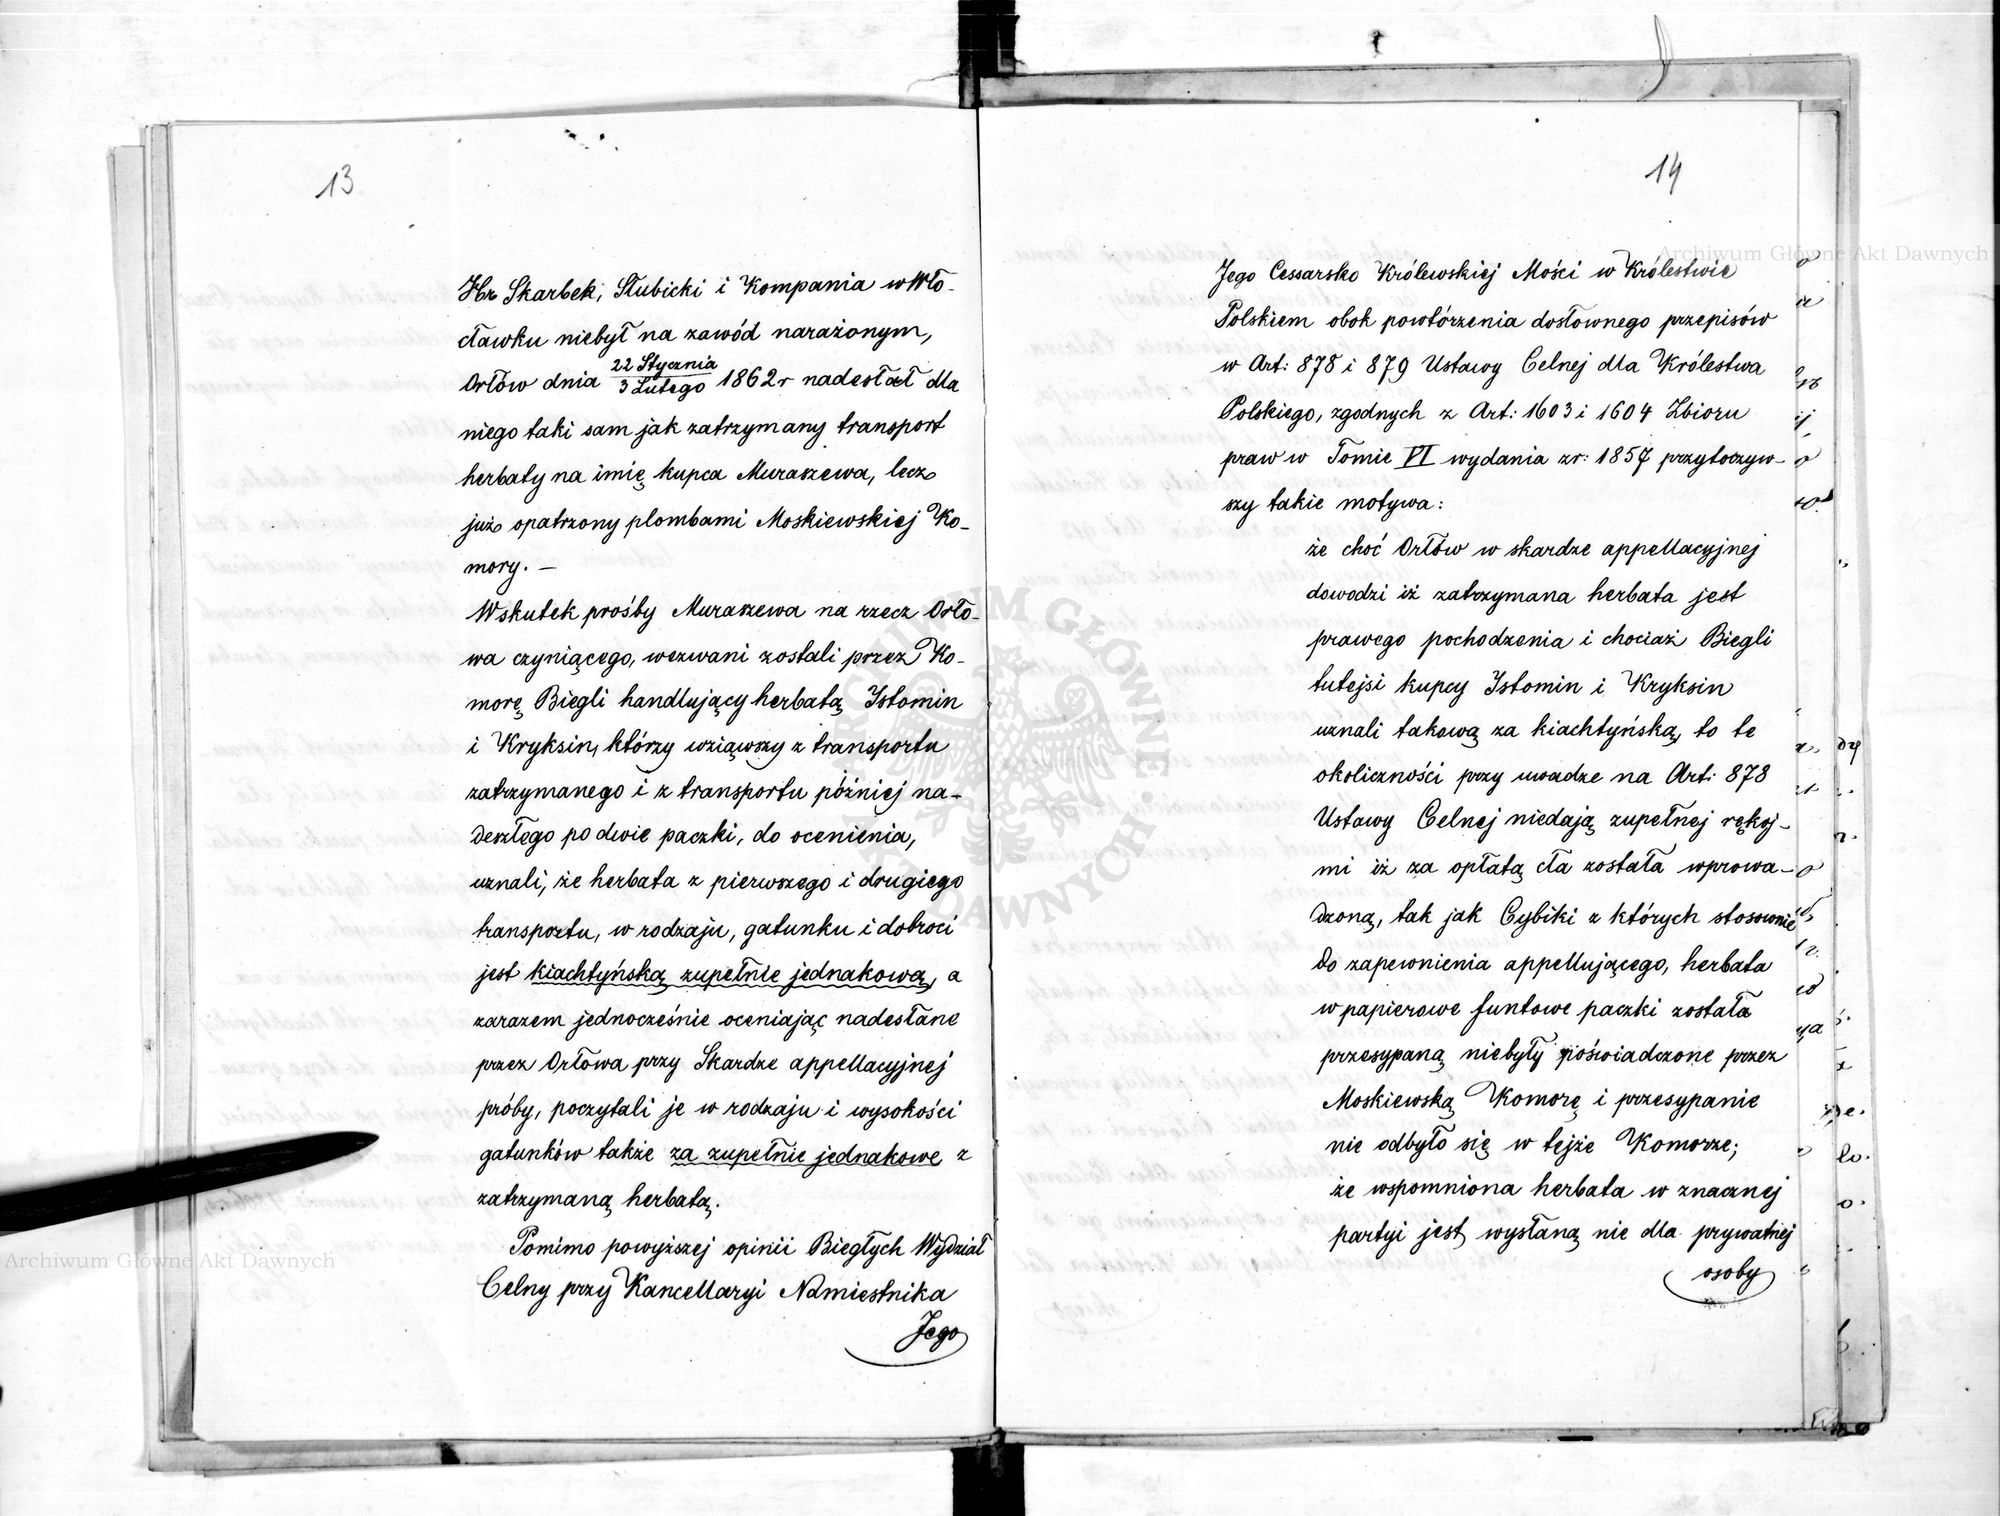 13
Hr. Skarbek, Słubicki i Kompania w Wło-
cławku niebył na zawód narażonym,
Orłów dnia 22 Stycznia / 3 Lutego 1862 r nadesłał dla
niego taki sam jak zatrzymany transport
herbaty na imię kupca Muraszewa, lecz
już opatrzony plombami Moskiewskiej Ko-
mory. —
Wskutek prośby Muraszewa na rzecz Orło-
wa czyniącego, wezwani zostali przez Ko-
morę Biegli handlujący herbatą Istomin
i Kryksin, którzy wziąwszy z transportu
zatrzymanego i z transportu później na-
deszłego po dwie paczki, do ocenienia,
uznali, że herbata z pierwszego i drugiego
transportu, w rodzaju, gatunku i dobroci
jest kiachtyńską zupełnie jednakową, a
zarazem jednocześnie oceniając nadesłane
przez Orłowa przy Skardze appellacyjnej
próby, poczytali je w rodzaju i wysokości
gatunków także za zupełnie jednakowe z
zatrzymaną herbatą.
Pomimo powyższej opinii Biegłych Wydział
Celny przy Kancellaryi Namiestnika
Jego
14
Jego Cessarsko Królewskiej Mości w Królestwie
Polskiem obok powtórzenia dosłownego przepisów
w Art: 878 i 879 Ustawy Celnej dla Królestwa
Polskiego, zgodnych z Art: 1603 i 1604 Zbioru
praw w Tomie VI wydania z r: 1857 przytoczyw-
szy takie motywa:
że choć Orłów w skardze appellacyjnej
dowodzi iż zatrzymana herbata jest
prawego pochodzenia i chociaż Biegli
tutejsi kupcy Istomin i Kryksin
uznali takową za kiachtyńską, to te
okoliczności przy uwadze na Art: 878
Ustawy Celnej niedają zupełnej rękoj-
mi iż za opłatą cła została wprowa-
dzoną, tak jak Cybiki z których stosownie
do zapewnienia appellującego, herbata
w papierowe funtowe paczki została
przesypaną niebyły poświadczone przez
Moskiewską Komorę i przesypanie
nie odbyło się w tejże Komorze;
że wspomniona herbata w znacznej
partyi jest wysłaną nie dla prywatnej
osoby
Archiwum Główne Akt Dawnych
Archiwum Główne Akt Dawnych
ARCHIWUM GŁÓWNE AKT DAWNYCH